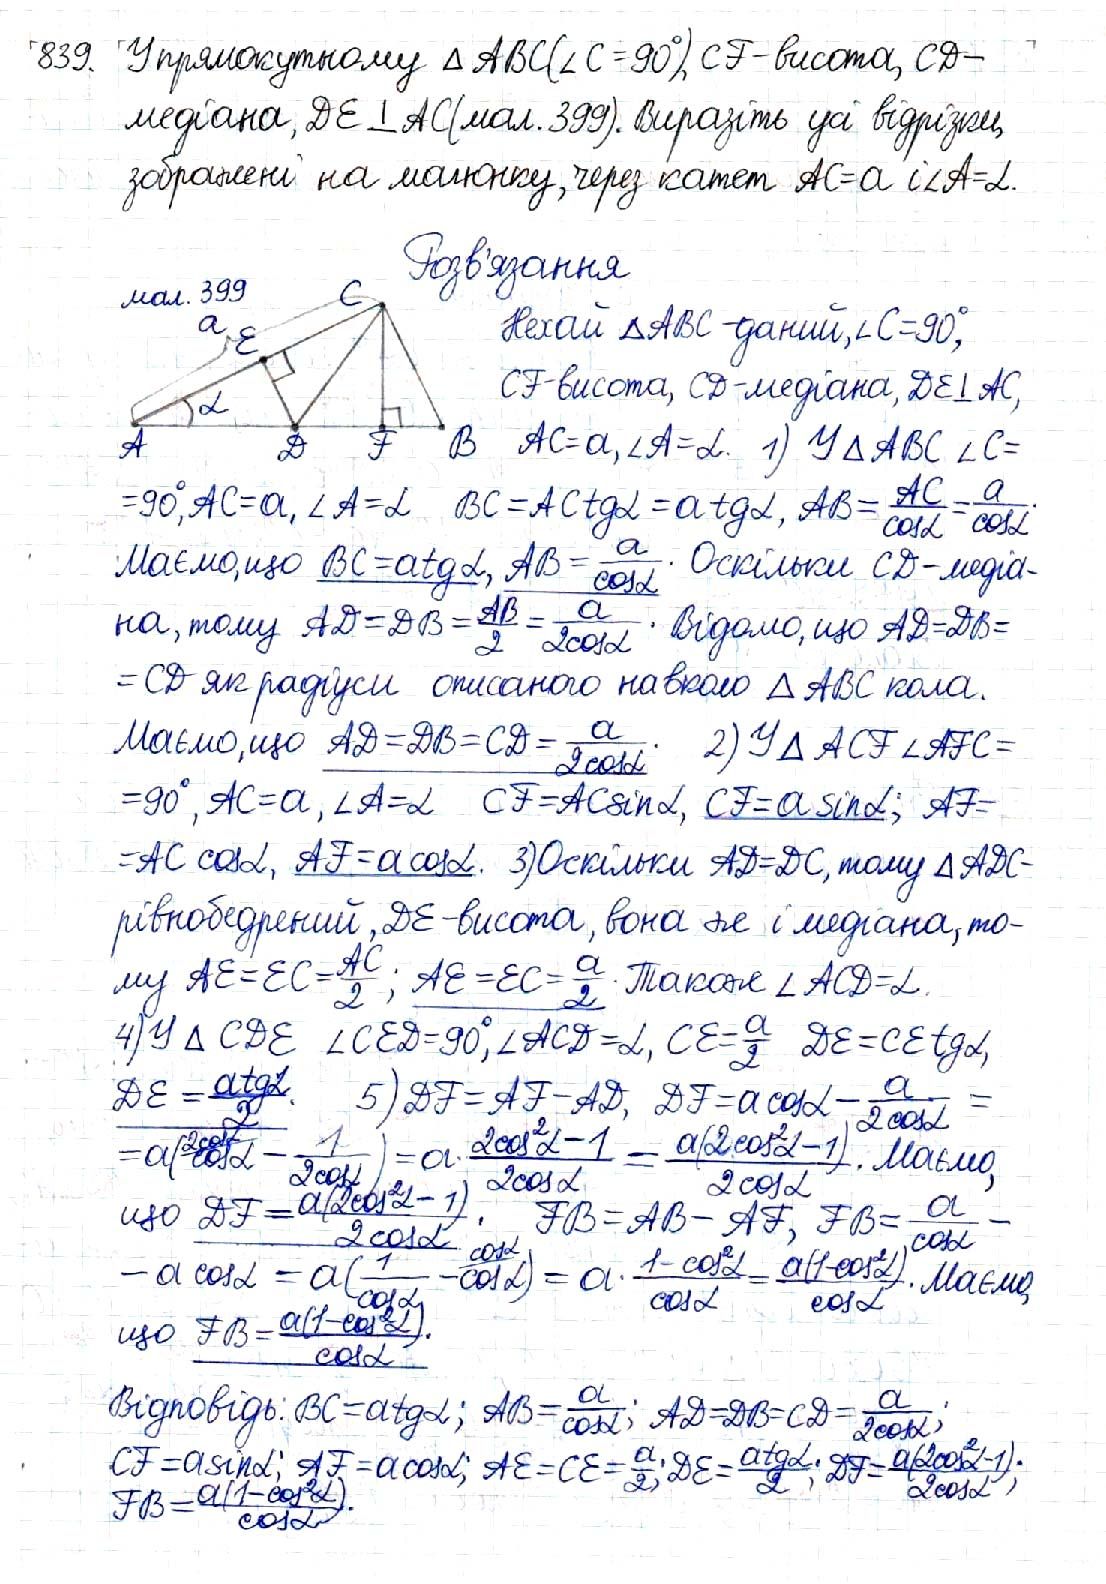 839. У прямокутному △ABC(∠C=90°), CF-висота, CD-
медіана, DE⊥AC(мал.399). Виразіть усі відрізки,
зображені на малюнку, через катет AC=a і ∠A=α.
Розв'язання
мал. 399
C
a
E
α
A D F B
Нехай △ABC-даний, ∠C=90°,
CF-висота, CD-медіана, DE⊥AC,
AC=a, ∠A=α. 1) У △ABC ∠C=
=90°, AC=a, ∠A=α BC=ACtgα=atgα, AB=AC/cosα=a/cosα.
Маємо, що BC=atgα, AB=a/cosα. Оскільки CD-медіа-
на, тому AD=DB=AB/2=a/2cosα. Відомо, що AD=DB=
=CD як радіуси описаного навколо △ABC кола.
Маємо, що AD=DB=CD=a/2cosα. 2) У △ACF ∠AFC=
=90°, AC=a, ∠A=α CF=ACsinα, CF=a sinα; AF=
=AC cosα, AF=a cosα. 3) Оскільки AD=DC, тому △ADC-
рівнобедрений, DE-висота, вона же і медіана, то-
му AE=EC=AC/2; AE=EC=a/2. Також ∠ACD=α.
4) У △CDE ∠CED=90°, ∠ACD=α, CE=a/2 DE=CEtgα,
DE=atgα/2. 5) DF=AF-AD, DF=acosα-a/2cosα=
=a(2cosα cosα-1/2cosα)=a·2cos²α-1/2cosα=a(2cos²α-1)/2cosα. Маємо,
що DF=a(2cos²α-1)/2cosα. FB=AB-AF, FB=a/cosα-
-a cosα=a(1/cosα-cosα cosα)=a·1-cos²α/cosα=a(1-cos²α)/cosα. Маємо,
що FB=a(1-cos²α)/cosα.
Відповідь: BC=atgα; AB=a/cosα; AD=DB=CD=a/2cosα;
CF=asinα; AF=acosα; AE=CE=a/2; DE=atgα/2; DF=a(2cos²α-1)/2cosα;
FB=a(1-cos²α)/cosα.